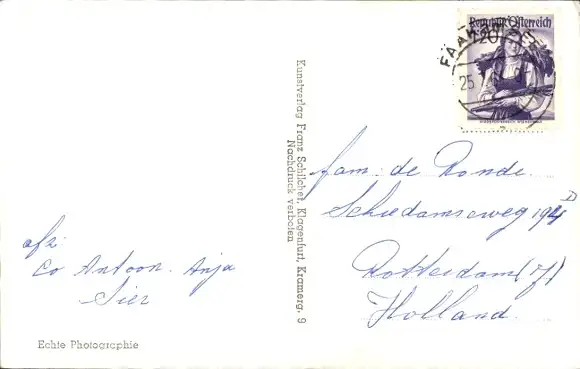 Republik Österreich
120
FAAK AM SEE
25
Kunstverlag Franz Schilcher, Klagenfurt, Kramerg. 9
Nachdruck verboten
fam: de Ronde.
Schiedamseweg 194 D
Rotterdam (
Holland.
afz:
Co Antoon. Anja
Sier
Echte Photographie